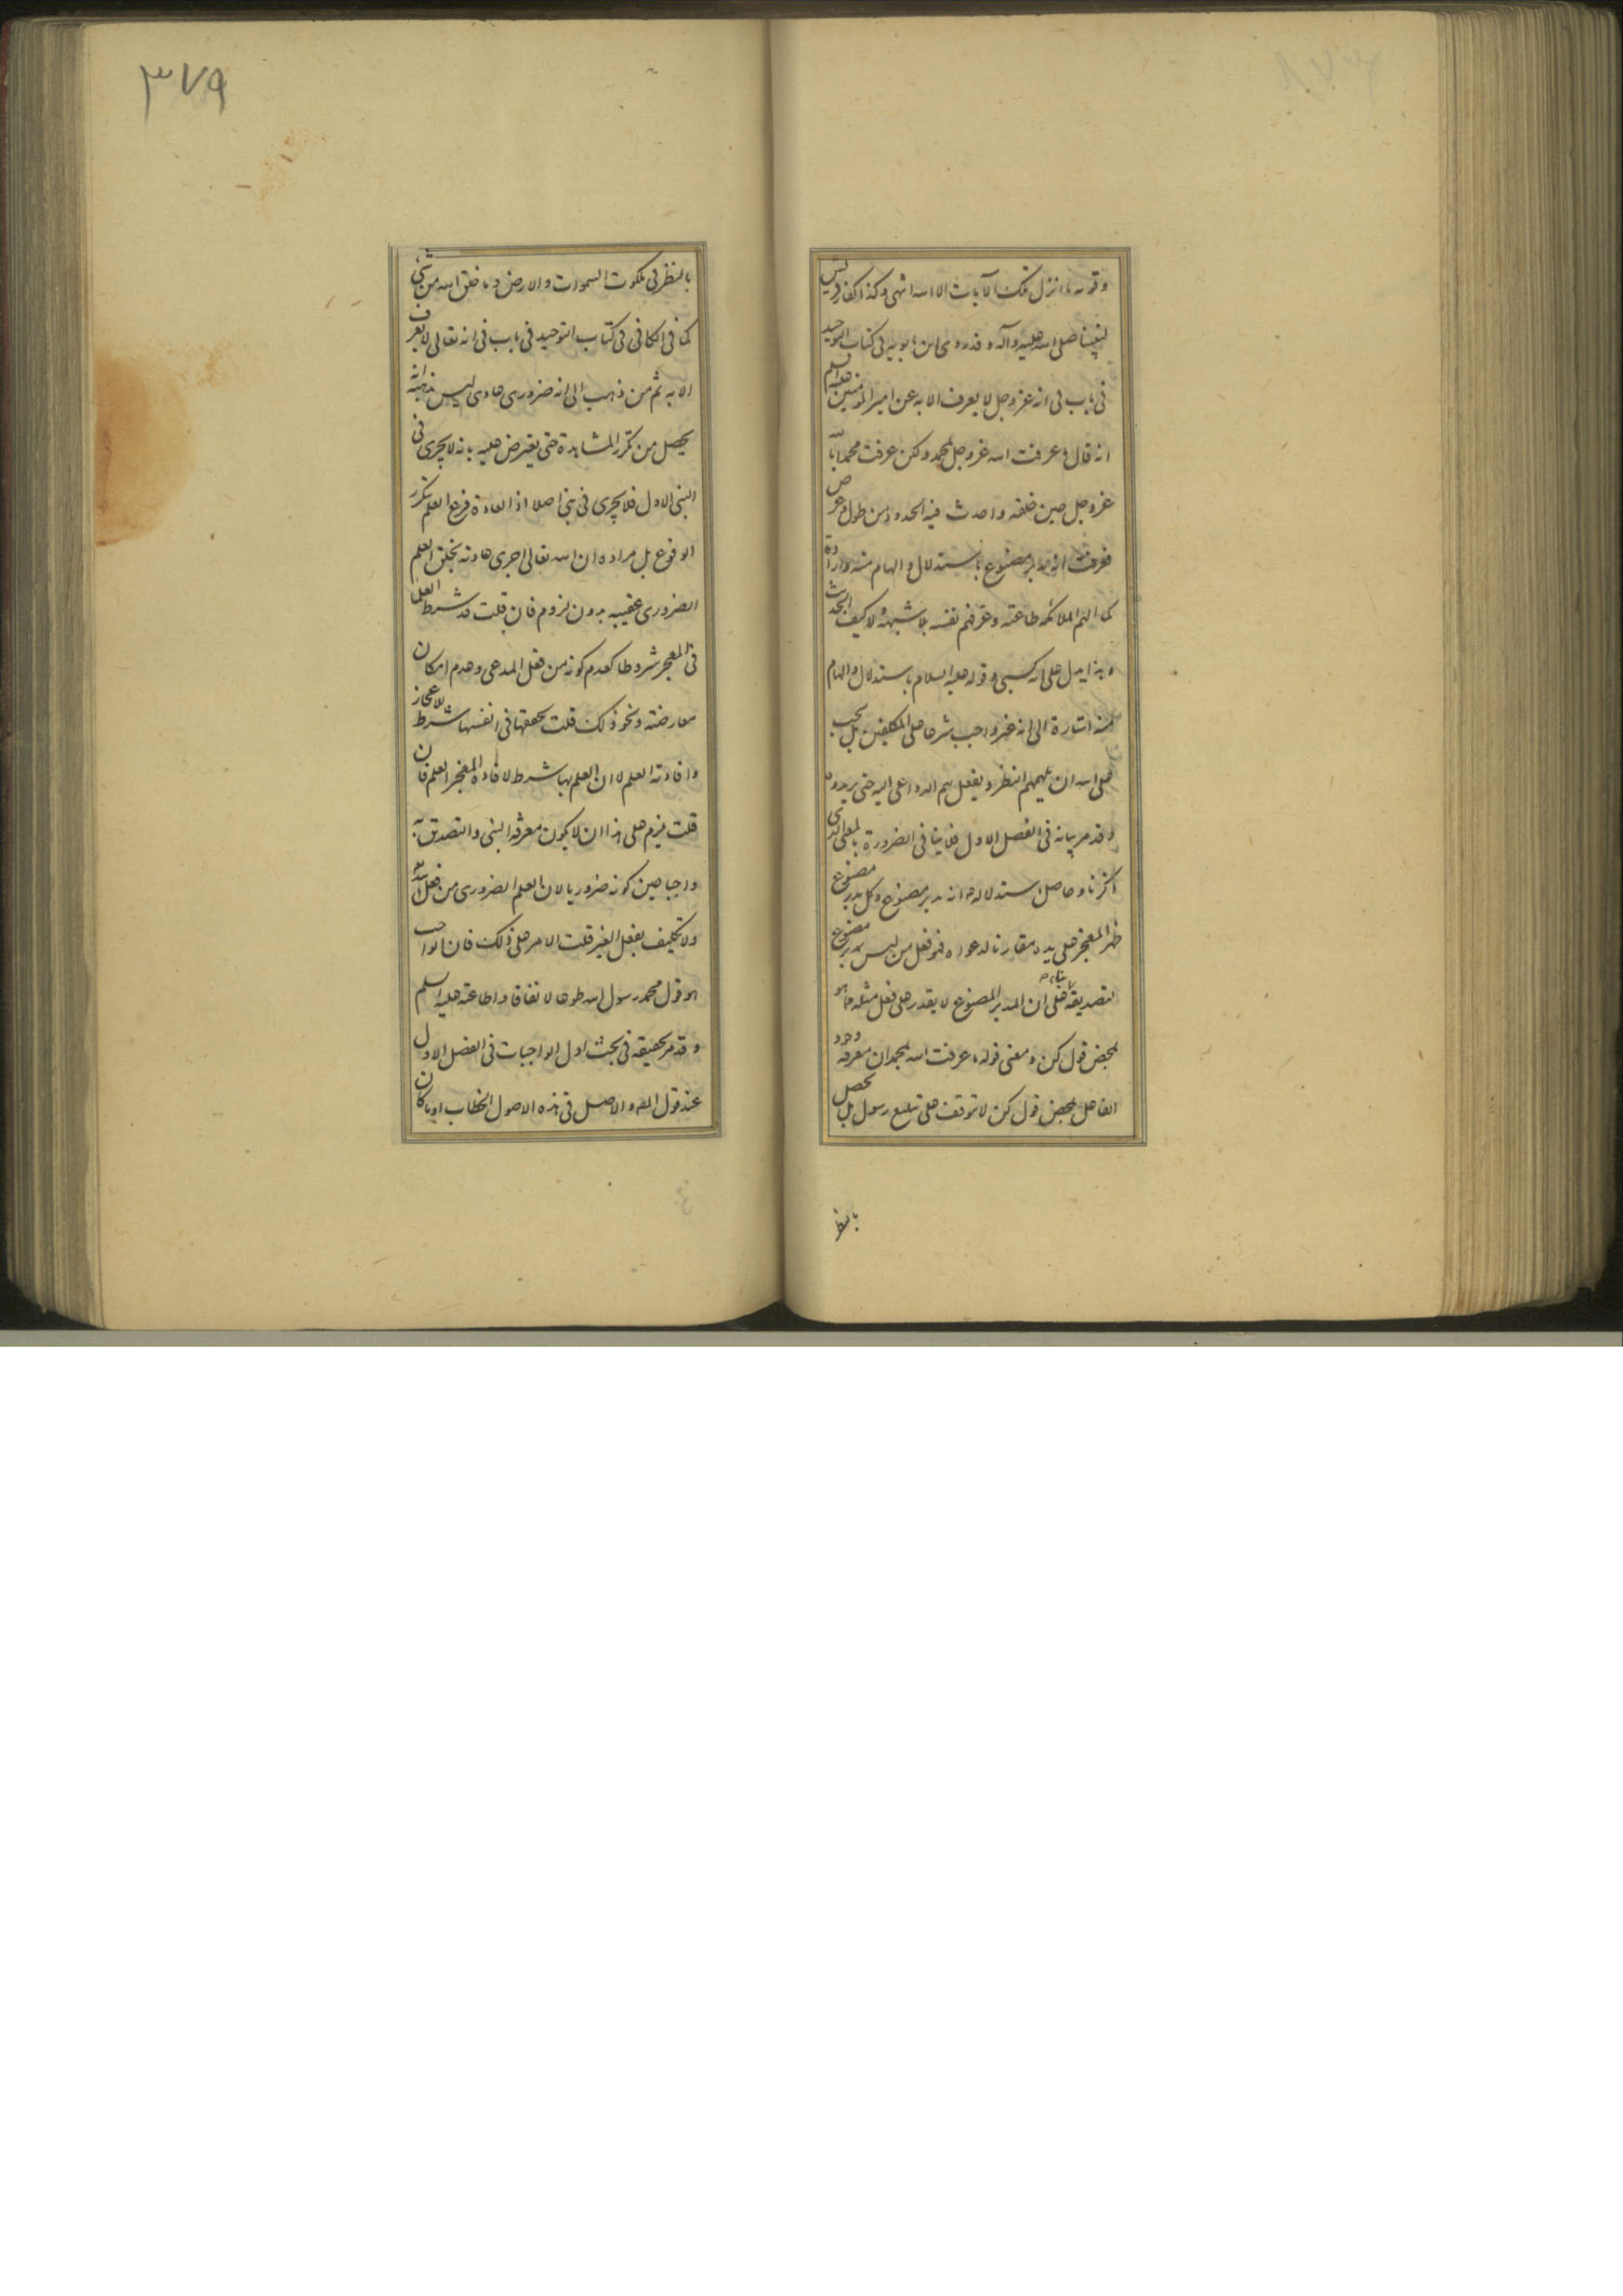 وقوله ما انزل تلك الآيات الا الله انتهى وكذا كفار قريش
لنبينا صلى الله عليه وآله وقد روى ابن بابويه في كتاب التوحيد
في باب في انه عز وجل لا يعرف الا به عن امير المؤمنين عليه السلم
انه قال ما عرفت الله عز وجل بمحمد ولكن عرفت محمدا بالله
عز وجل حين خلقه واحدث فيه الحدود من طول وعرض
فعرفت انه مدبر مصنوع باستدلال والهام منه وارادة
كما الهم الملائكة طاعته وعرفهم نفسه بلا شبهة ولا كيف الحديث
وهذا يدل على انه كسبي وقوله عليه السلام باستدلال والهام
منه اشارة الى انه غير واجب شرعا على المكلفين بل يجب
على الله ان يلهمهم النظر ويفعل بهم الدواعي اليه حتى يريدوه
وقد مر بيانه في الفصل الاول فلا ينافي الضرورة بالمعنى الذي
ذكرنا وحاصل استدلاله انه مدبر مصنوع وكل مدبر مصنوع
ظهر المعجز على يده مقارنا لدعواه فهو فعل من ليس بمدبر مصنوع
لتصديقه بناء على ان المدبر المصنوع لا يقدر على فعل مثله مما هو
بمحض قول كن ومعنى قوله ما عرفت الله بمحمد ان معرفة وجود
الفاعل بمحض قول كن لا تتوقف على تبليغ رسول بل يحصل
بالنظر
٣٧٩
بالنظر في ملكوت السموات والارض وما خلق الله من شيء
كما في الكافي في كتاب التوحيد في باب في انه تعالى لا يعرف
الا به ثم من ذهب الى انه ضروري عادي ليس مذهبه انه
يحصل من تكرر المشاهدة حتى يعترض عليه بانه لا يجري في
النبي الاول فلا يجري في نبي اصلا اذ العادة فرع العلم بتكرر
الوقوع بل مراده ان الله تعالى اجرى عادته بخلق العلم
الضروري عقيبه بدون لزوم فان قلت قد شرط العلماء
في المعجز شروطا كعدم كونه من فعل المدعي وعدم امكان
معارضته ونحو ذلك قلت تحققها في انفسها شرط لاعجازه
وافادته العلم لا ان العلم بها شرط لافادة المعجز العلم فان
قلت يلزم على هذا ان لا يكون معرفة النبي والتصديق به
واجبا حين كونه ضروريا لان العلم الضروري من فعل الله
ولا تكليف بفعل الغير قلت الامر على ذلك فان الواجب
هو قول محمد رسول الله طوعا لا نفاقا واطاعته عليه السلم
وقد مر تحقيقه في بحث اول الواجبات في الفصل الاول
عند قول المص والاصل في هذه الاصول الخطاب اوما كان